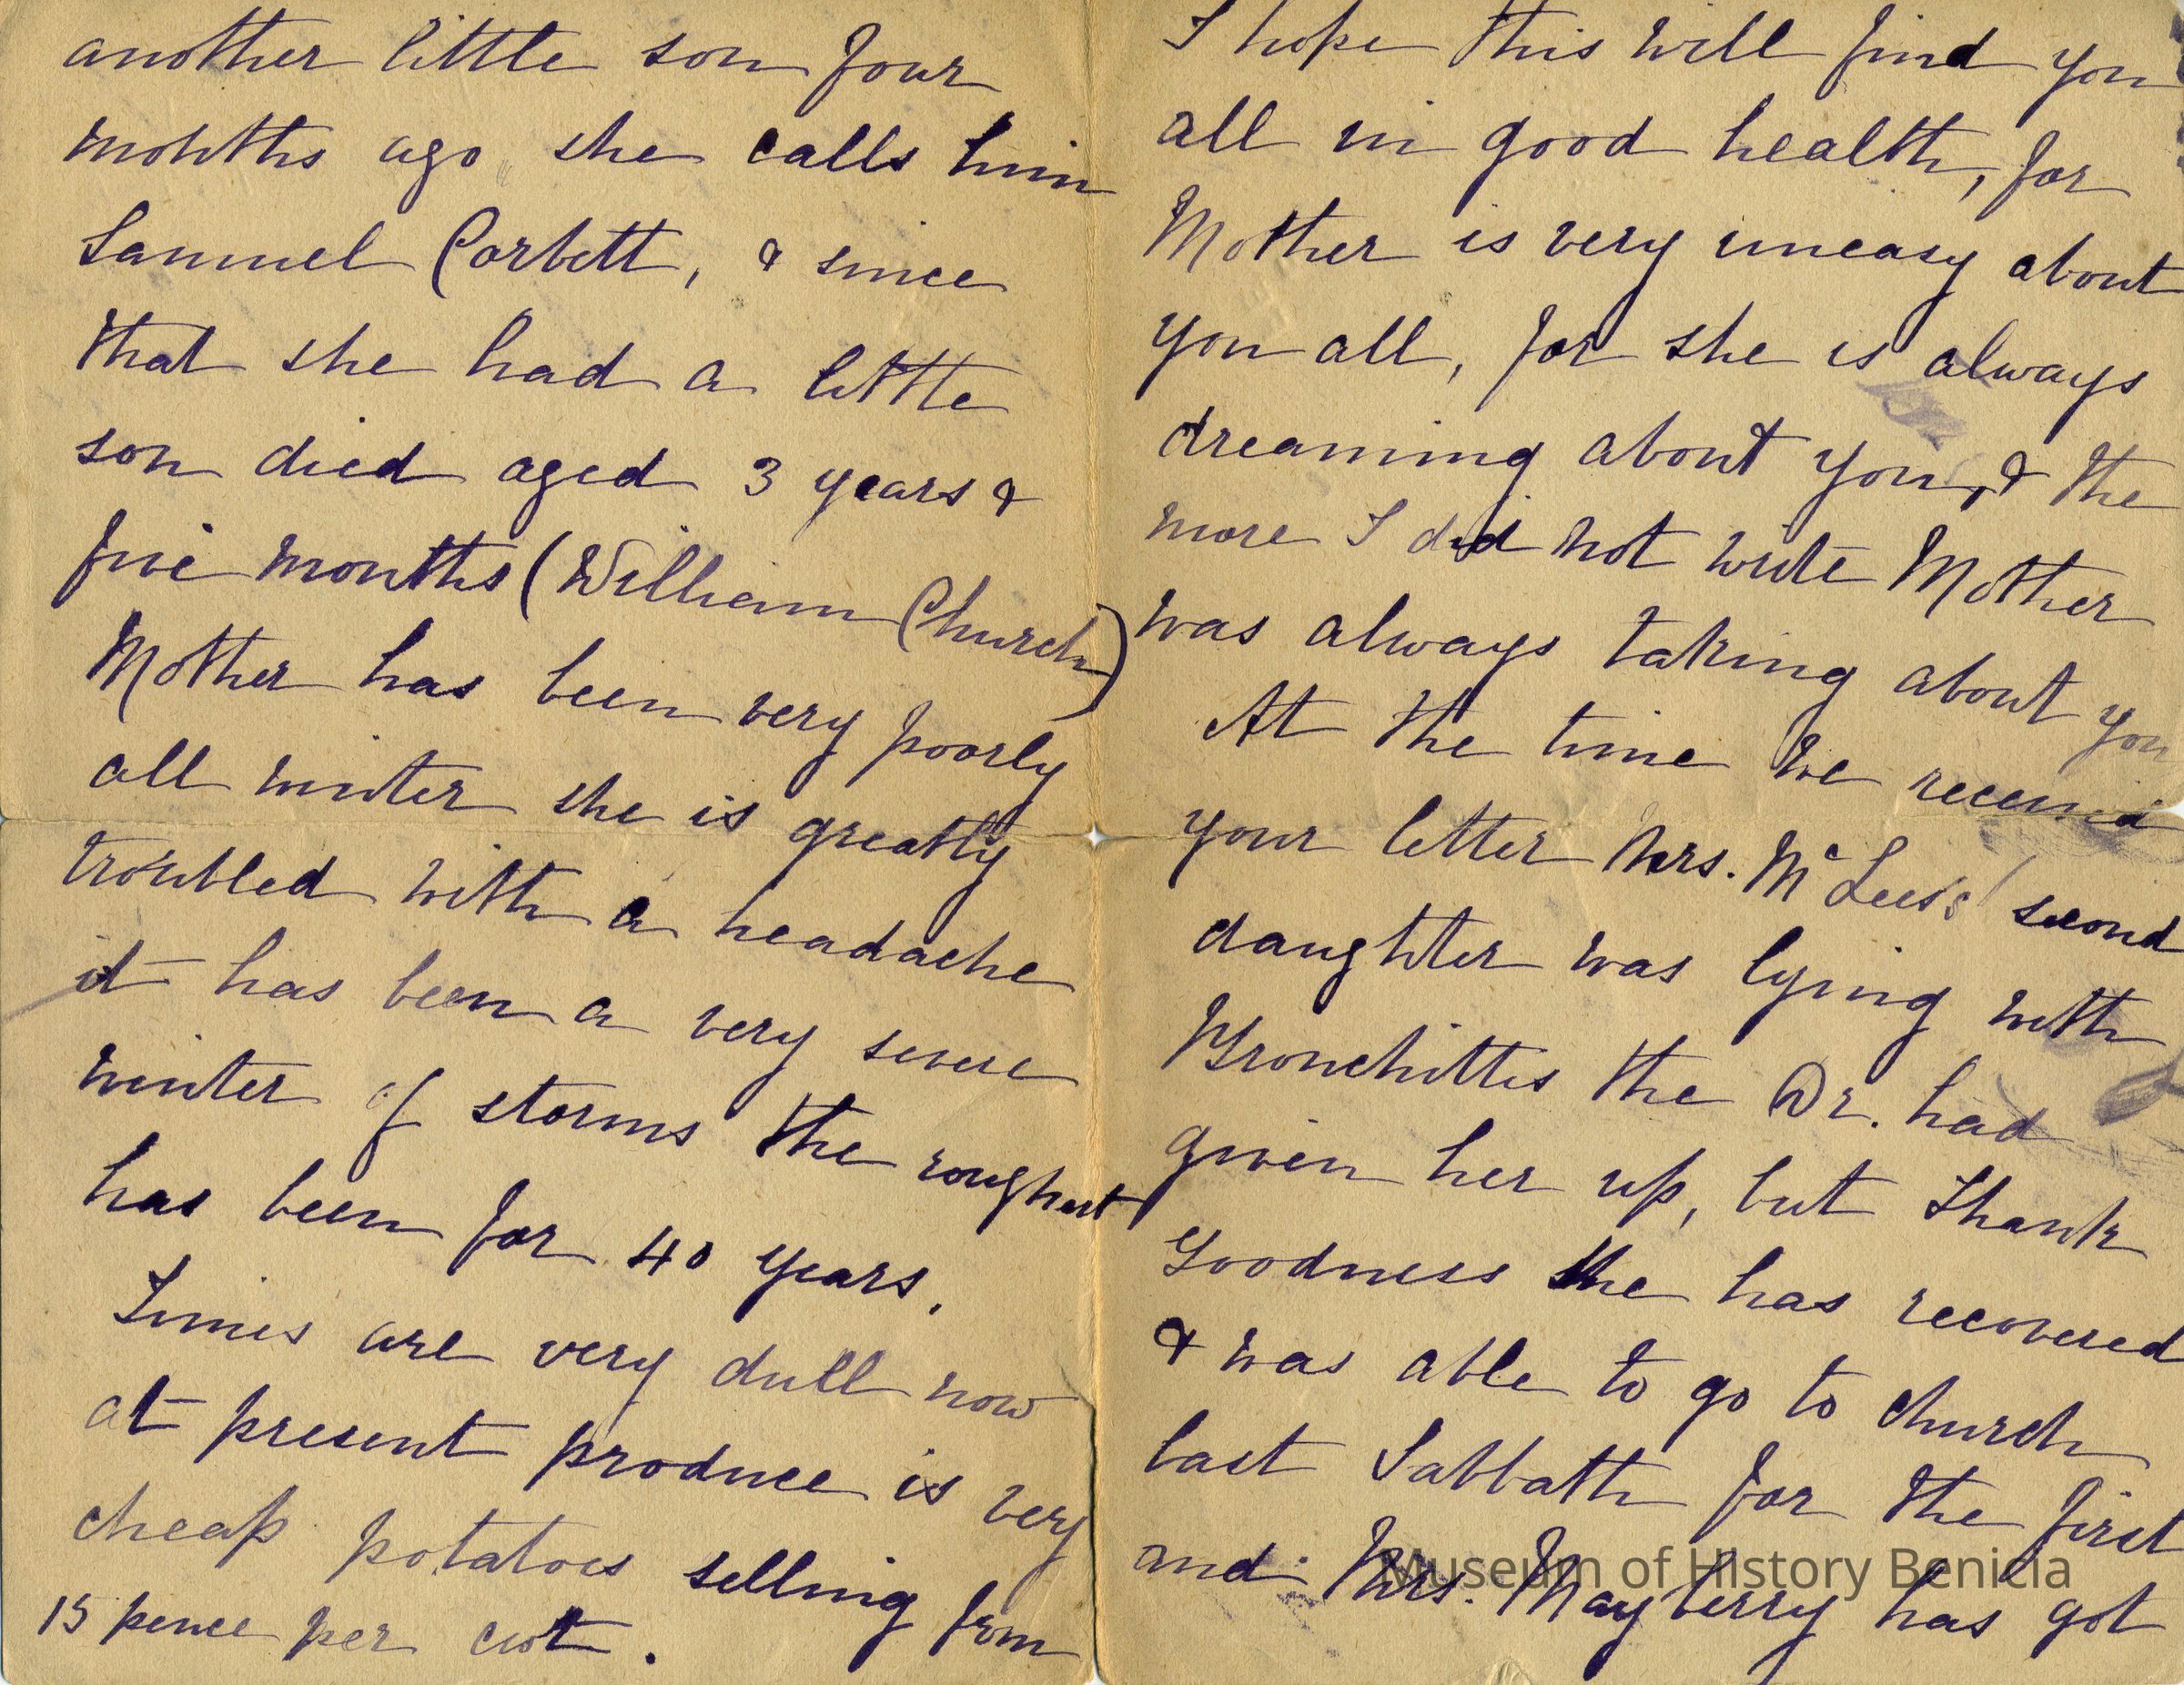 another little son four
months ago she calls him
Samuel Corbett, & since
that she had a little
son died aged 3 years &
five months (William Church)
Mother has been very poorly
all winter she is greatly
troubled with a headache
it has been a very severe
winter of storms the roughest
has been for 40 years.
Times are very dull now
at present produce is very
cheap potatoes selling from
15 pence per cwt.
I hope this will find you
all in good health, for
Mother is very uneasy about
you all, for she is always
dreaming about you, & the
more I did not write Mother
was always taking about you
At the time we received
your letter Mrs. McLees's second
daughter was lying with
Bronchittis the Dr. had
given her up, but Thank
Goodness she has recovered
& was able to go to church
last Sabbath for the first
and Mrs. Mayberry has got
Museum of History Benicia